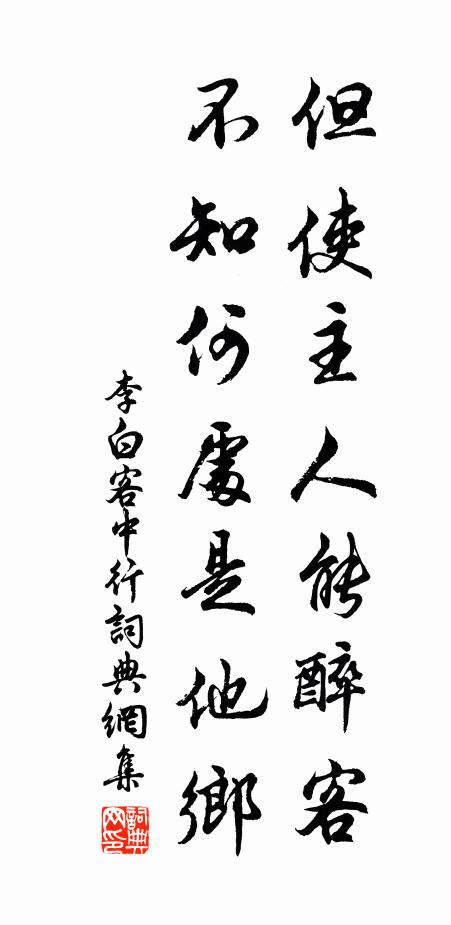 但使主人能醉客
不知何處是他鄉
李白客中行詞典網集
詞典
网印